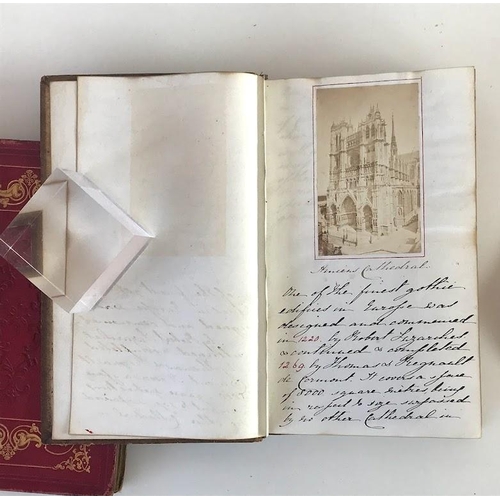 Amiens Cathedral.
One of the finest gothic
edifices in Europe was
designed and commenced
in 1220 by Robert Luzarches
& continued & completed
1269 by Thomas & Regnault
de Cormont. It covers a space
of 8000 square metres being
in respect to size surpassed
by no other Cathedral in